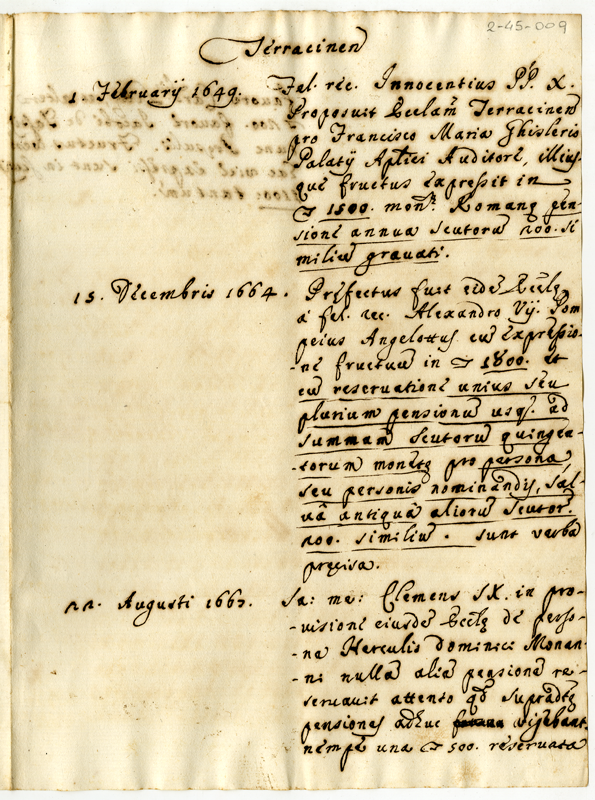 2-45-009
Terracineñ
1 Februarij 1649. Fal. rec. Innocentius PP. X.
Proposuit Eccl̃am Terracineñ
pro Francisco Maria Ghislerio
Palatij Aplici Auditore, illius
que fructus expressit in
1500. mon. Romane pen-
sione annua scutorũ 200. si
miliũ gravati.
15. Decembris 1664. Prefectus fuit eidẽ Eccl̃e
a fel. rec. Alexandro Vij. Pom
peius Angelottus cũ expressio-
-ne fructuũ in 1800. et
cũ reservatione unius seu
plurium pensionũ usq. ad
summam scutorũ quingen-
-torum monete pro persona
seu personis nominandis, sal-
va antiqua aliorũ scutor.
200. similiũ. sunt verba
precisa.
22. Augusti 1667. Sa: me: Clemens IX. in pro-
-visione eiusdẽ Eccl̃e de perso-
-na Herculis Dominici Monan-
-ni nulla alia pensione re-
servavit attento qd̃ supradte
pensiones adhuc vigebant
nempe una 500. reservata